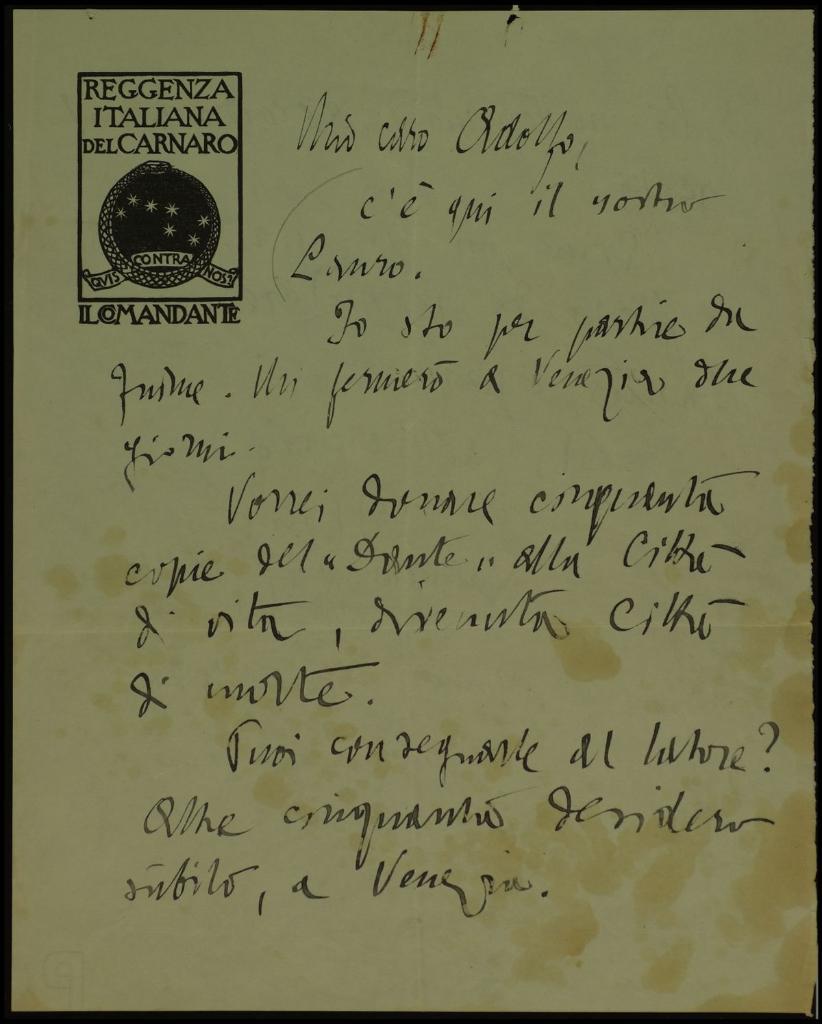 REGGENZA
ITALIANA
DEL CARNARO
QUIS CONTRA NOS?
IL COMANDANTE
Mio caro Adolfo,
c'è qui il nostro
Lauro.
Io sto per partire da
Fiume. Mi fermerò a Venezia due
giorni.
Vorrei donare cinquanta
copie del "Dante" alla Città
di vita, divenuta Città
di morte.
Puoi consegnarle al latore?
Altre cinquanta desidero
sùbito, a Venezia.